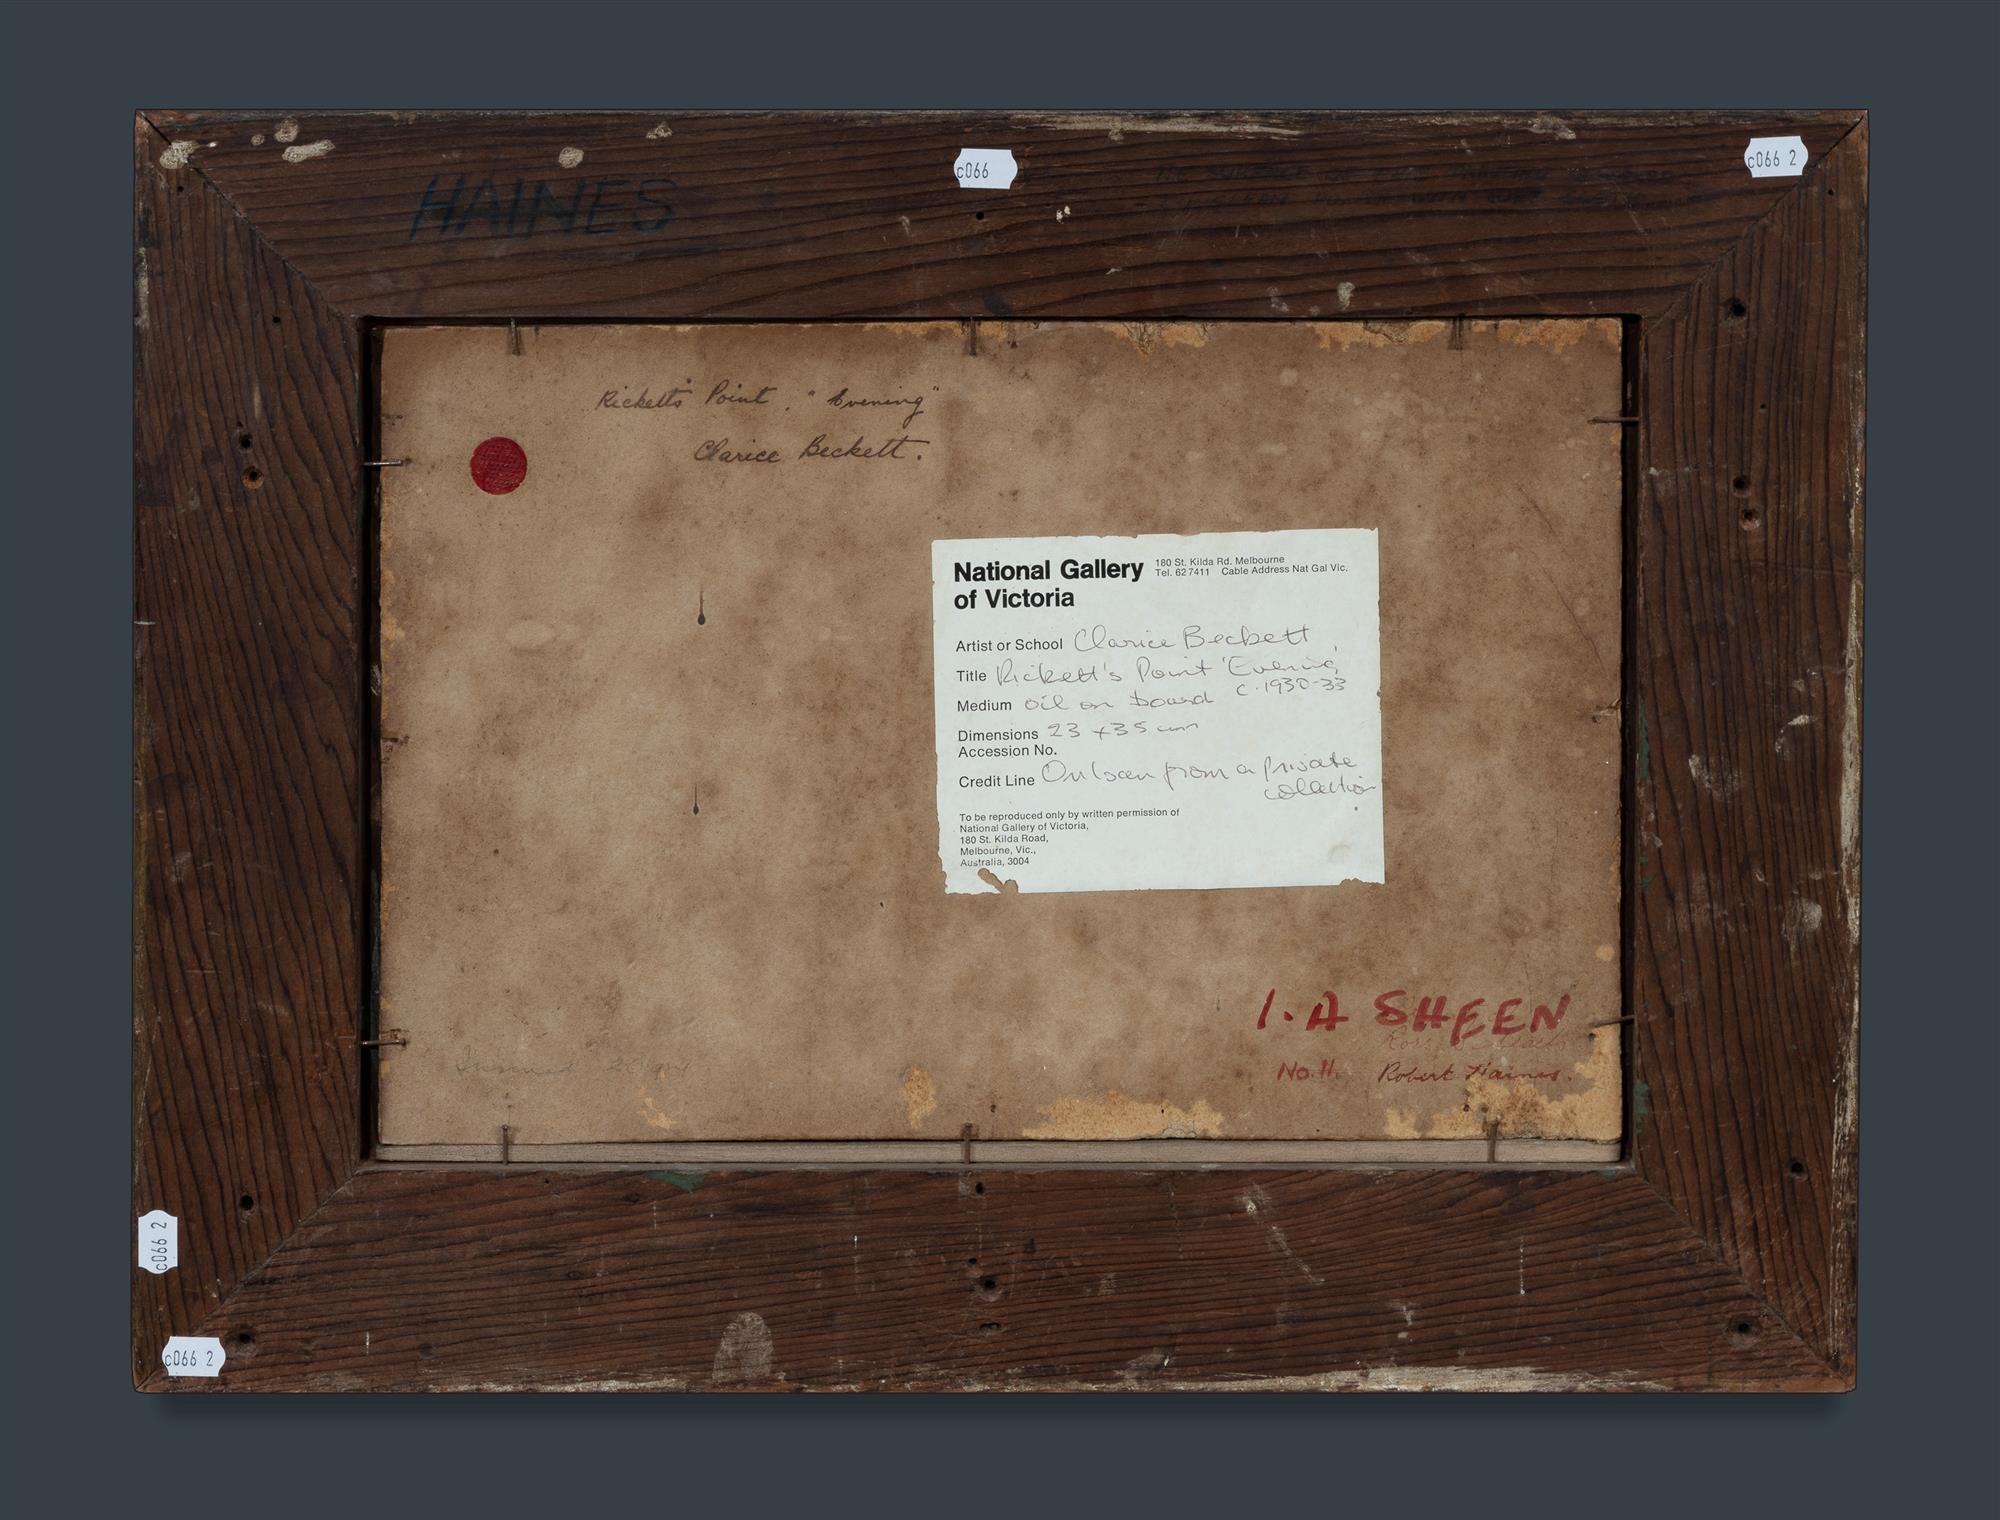 c066
c066 2
HAINES
Rickett's Point. "Evening"
Clarice Beckett.
National Gallery
of Victoria
180 St. Kilda Rd. Melbourne
Tel. 627411 Cable Address Nat Gal Vic.
Artist or School Clarice Beckett
Title Rickett's Point 'Evening'
c.1930-33
Medium oil on board
Dimensions 23 x 35 cm
Accession No.
Credit Line On loan from a private
collection
To be reproduced only by written permission of
National Gallery of Victoria,
180 St. Kilda Road,
Melbourne, Vic.,
Australia, 3004
1. A SHEEN
Ross
No. 11. Robert Haines.
c066 2
c066 2